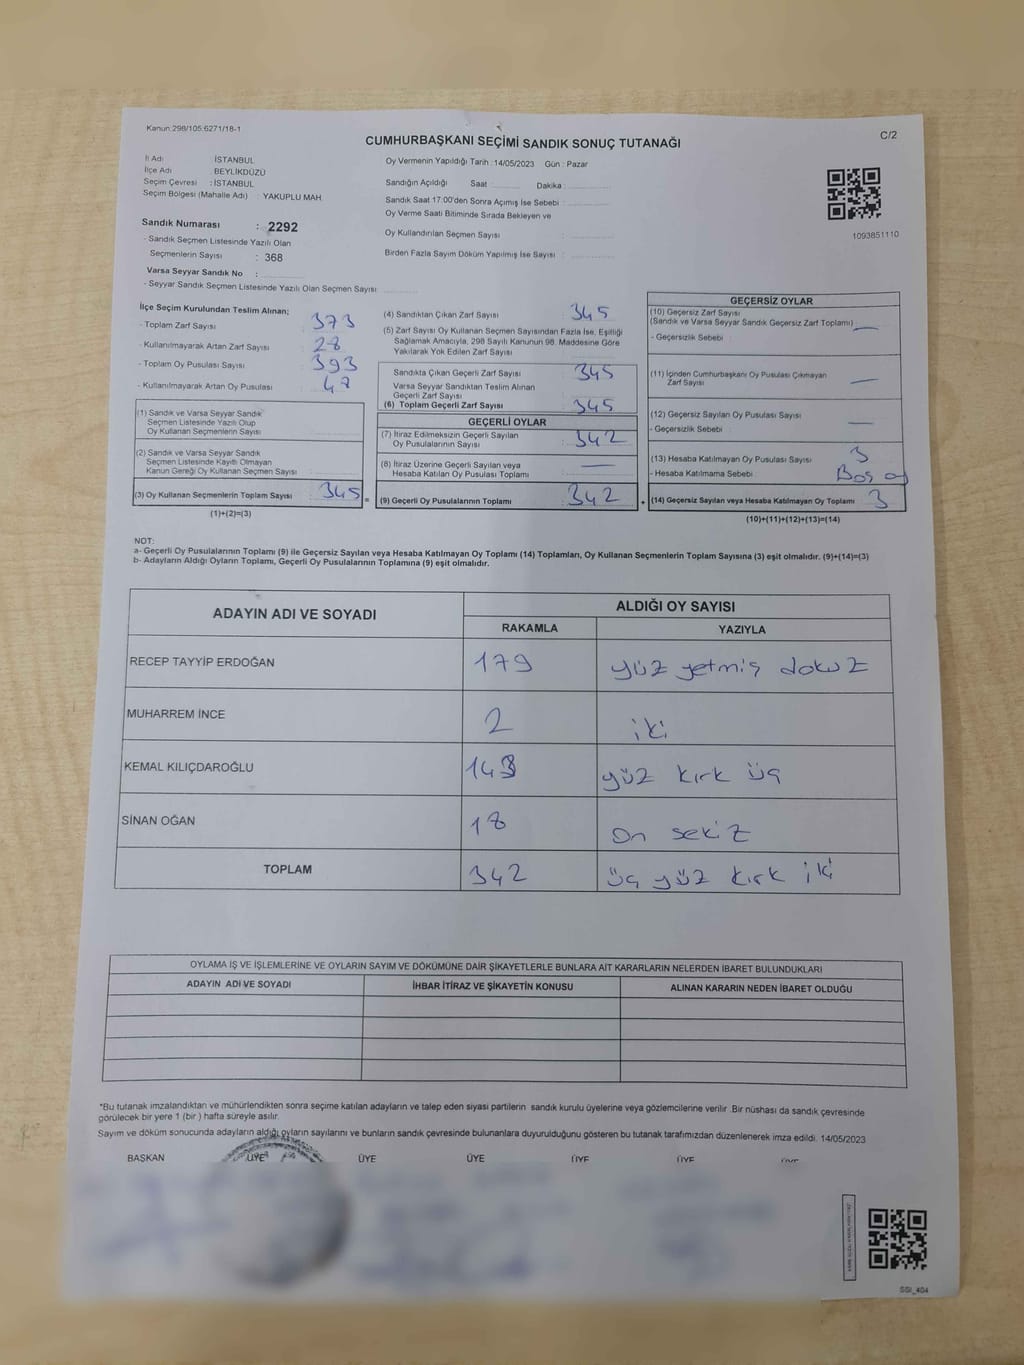 Kanun:298/105:6271/18-1
C/2
CUMHURBAŞKANI SEÇİMİ SANDIK SONUÇ TUTANAĞI
İl Adı : İSTANBUL
İlçe Adı : BEYLİKDÜZÜ
Seçim Çevresi : İSTANBUL
Seçim Bölgesi (Mahalle Adı) : YAKUPLU MAH.
Sandık Numarası : 2292
- Sandık Seçmen Listesinde Yazılı Olan
Seçmenlerin Sayısı : 368
Varsa Seyyar Sandık No :
- Seyyar Sandık Seçmen Listesinde Yazılı Olan Seçmen Sayısı
Oy Vermenin Yapıldığı Tarih :14/05/2023 Gün : Pazar
Sandığın Açıldığı Saat Dakika :
Sandık Saat 17:00'den Sonra Açımış İse Sebebi :
Oy Verme Saati Bitiminde Sırada Bekleyen ve
Oy Kullandırılan Seçmen Sayısı :
Birden Fazla Sayım Döküm Yapılmış İse Sayısı :
1093851110
İlçe Seçim Kurulundan Teslim Alınan;
- Toplam Zarf Sayısı 373
- Kullanılmayarak Artan Zarf Sayısı 28
- Toplam Oy Pusulası Sayısı 393
- Kullanılmayarak Artan Oy Pusulası 47
(1) Sandık ve Varsa Seyyar Sandık
Seçmen Listesinde Yazılı Olup
Oy Kullanan Seçmenlerin Sayısı
(2) Sandık ve Varsa Seyyar Sandık
Seçmen Listesinde Kayıtlı Olmayan
Kanun Gereği Oy Kullanan Seçmen Sayısı
(3) Oy Kullanan Seçmenlerin Toplam Sayısı : 345 =
(1)+(2)=(3)
(4) Sandıktan Çıkan Zarf Sayısı 345
(5) Zarf Sayısı Oy Kullanan Seçmen Sayısından Fazla İse, Eşitliği
Sağlamak Amacıyla, 298 Sayılı Kanunun 98. Maddesine Göre
Yakılarak Yok Edilen Zarf Sayısı
Sandıkta Çıkan Geçerli Zarf Sayısı 345
Varsa Seyyar Sandıktan Teslim Alınan
Geçerli Zarf Sayısı
(6) Toplam Geçerli Zarf Sayısı 345
GEÇERLİ OYLAR
(7) İtiraz Edilmeksizin Geçerli Sayılan
Oy Pusulalarının Sayısı 342
(8) İtiraz Üzerine Geçerli Sayılan veya
Hesaba Katılan Oy Pusulası Toplamı —
(9) Geçerli Oy Pusulalarının Toplamı 342 +
GEÇERSİZ OYLAR
(10) Geçersiz Zarf Sayısı
(Sandık ve Varsa Seyyar Sandık Geçersiz Zarf Toplamı) —
- Geçersizlik Sebebi :
(11) İçinden Cumhurbaşkanı Oy Pusulası Çıkmayan
Zarf Sayısı —
(12) Geçersiz Sayılan Oy Pusulası Sayısı —
- Geçersizlik Sebebi
(13) Hesaba Katılmayan Oy Pusulası Sayısı 3
- Hesaba Katılmama Sebebi Boş oy
(14) Geçersiz Sayılan veya Hesaba Katılmayan Oy Toplamı 3
(10)+(11)+(12)+(13)=(14)
NOT:
a- Geçerli Oy Pusulalarının Toplamı (9) ile Geçersiz Sayılan veya Hesaba Katılmayan Oy Toplamı (14) Toplamları, Oy Kullanan Seçmenlerin Toplam Sayısına (3) eşit olmalıdır. (9)+(14)=(3)
b- Adayların Aldığı Oyların Toplamı, Geçerli Oy Pusulalarının Toplamına (9) eşit olmalıdır.
ADAYIN ADI VE SOYADI
ALDIĞI OY SAYISI
RAKAMLA YAZIYLA
RECEP TAYYİP ERDOĞAN 179 yüz yetmiş dokuz
MUHARREM İNCE 2 iki
KEMAL KILIÇDAROĞLU 143 yüz kırk üç
SİNAN OĞAN 18 on sekiz
TOPLAM 342 üç yüz kırk iki
OYLAMA İŞ VE İŞLEMLERİNE VE OYLARIN SAYIM VE DÖKÜMÜNE DAİR ŞİKAYETLERLE BUNLARA AİT KARARLARIN NELERDEN İBARET BULUNDUKLARI
ADAYIN ADI VE SOYADI İHBAR İTİRAZ VE ŞİKAYETİN KONUSU ALINAN KARARIN NEDEN İBARET OLDUĞU
*Bu tutanak imzalandıktan ve mühürlendikten sonra seçime katılan adayların ve talep eden siyasi partilerin sandık kurulu üyelerine veya gözlemcilerine verilir .Bir nüshası da sandık çevresinde
görülecek bir yere 1 (bir ) hafta süreyle asılır.
Sayım ve döküm sonucunda adayların aldığı oyların sayılarını ve bunların sandık çevresinde bulunanlara duyurulduğunu gösteren bu tutanak tarafımızdan düzenlenerek imza edildi. 14/05/2023
BAŞKAN ÜYE ÜYE ÜYE ÜYE ÜYE ÜYE
SGI_404